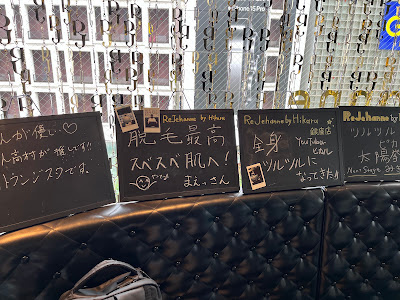 iPhone 15 Pro
んが優し…♡
ん高村が推してます!!
トランジスタです。
ReJehanne by Hikaru
脱毛最高
スベスベ肌へ!
まぇっさん
ReJehanne by Hikaru
銀座店
YouTuber
ヒカル
全身
ツルツルに
なってきた♪
ReJehanne by
ツルツル
ピカ
太陽
Next Stage